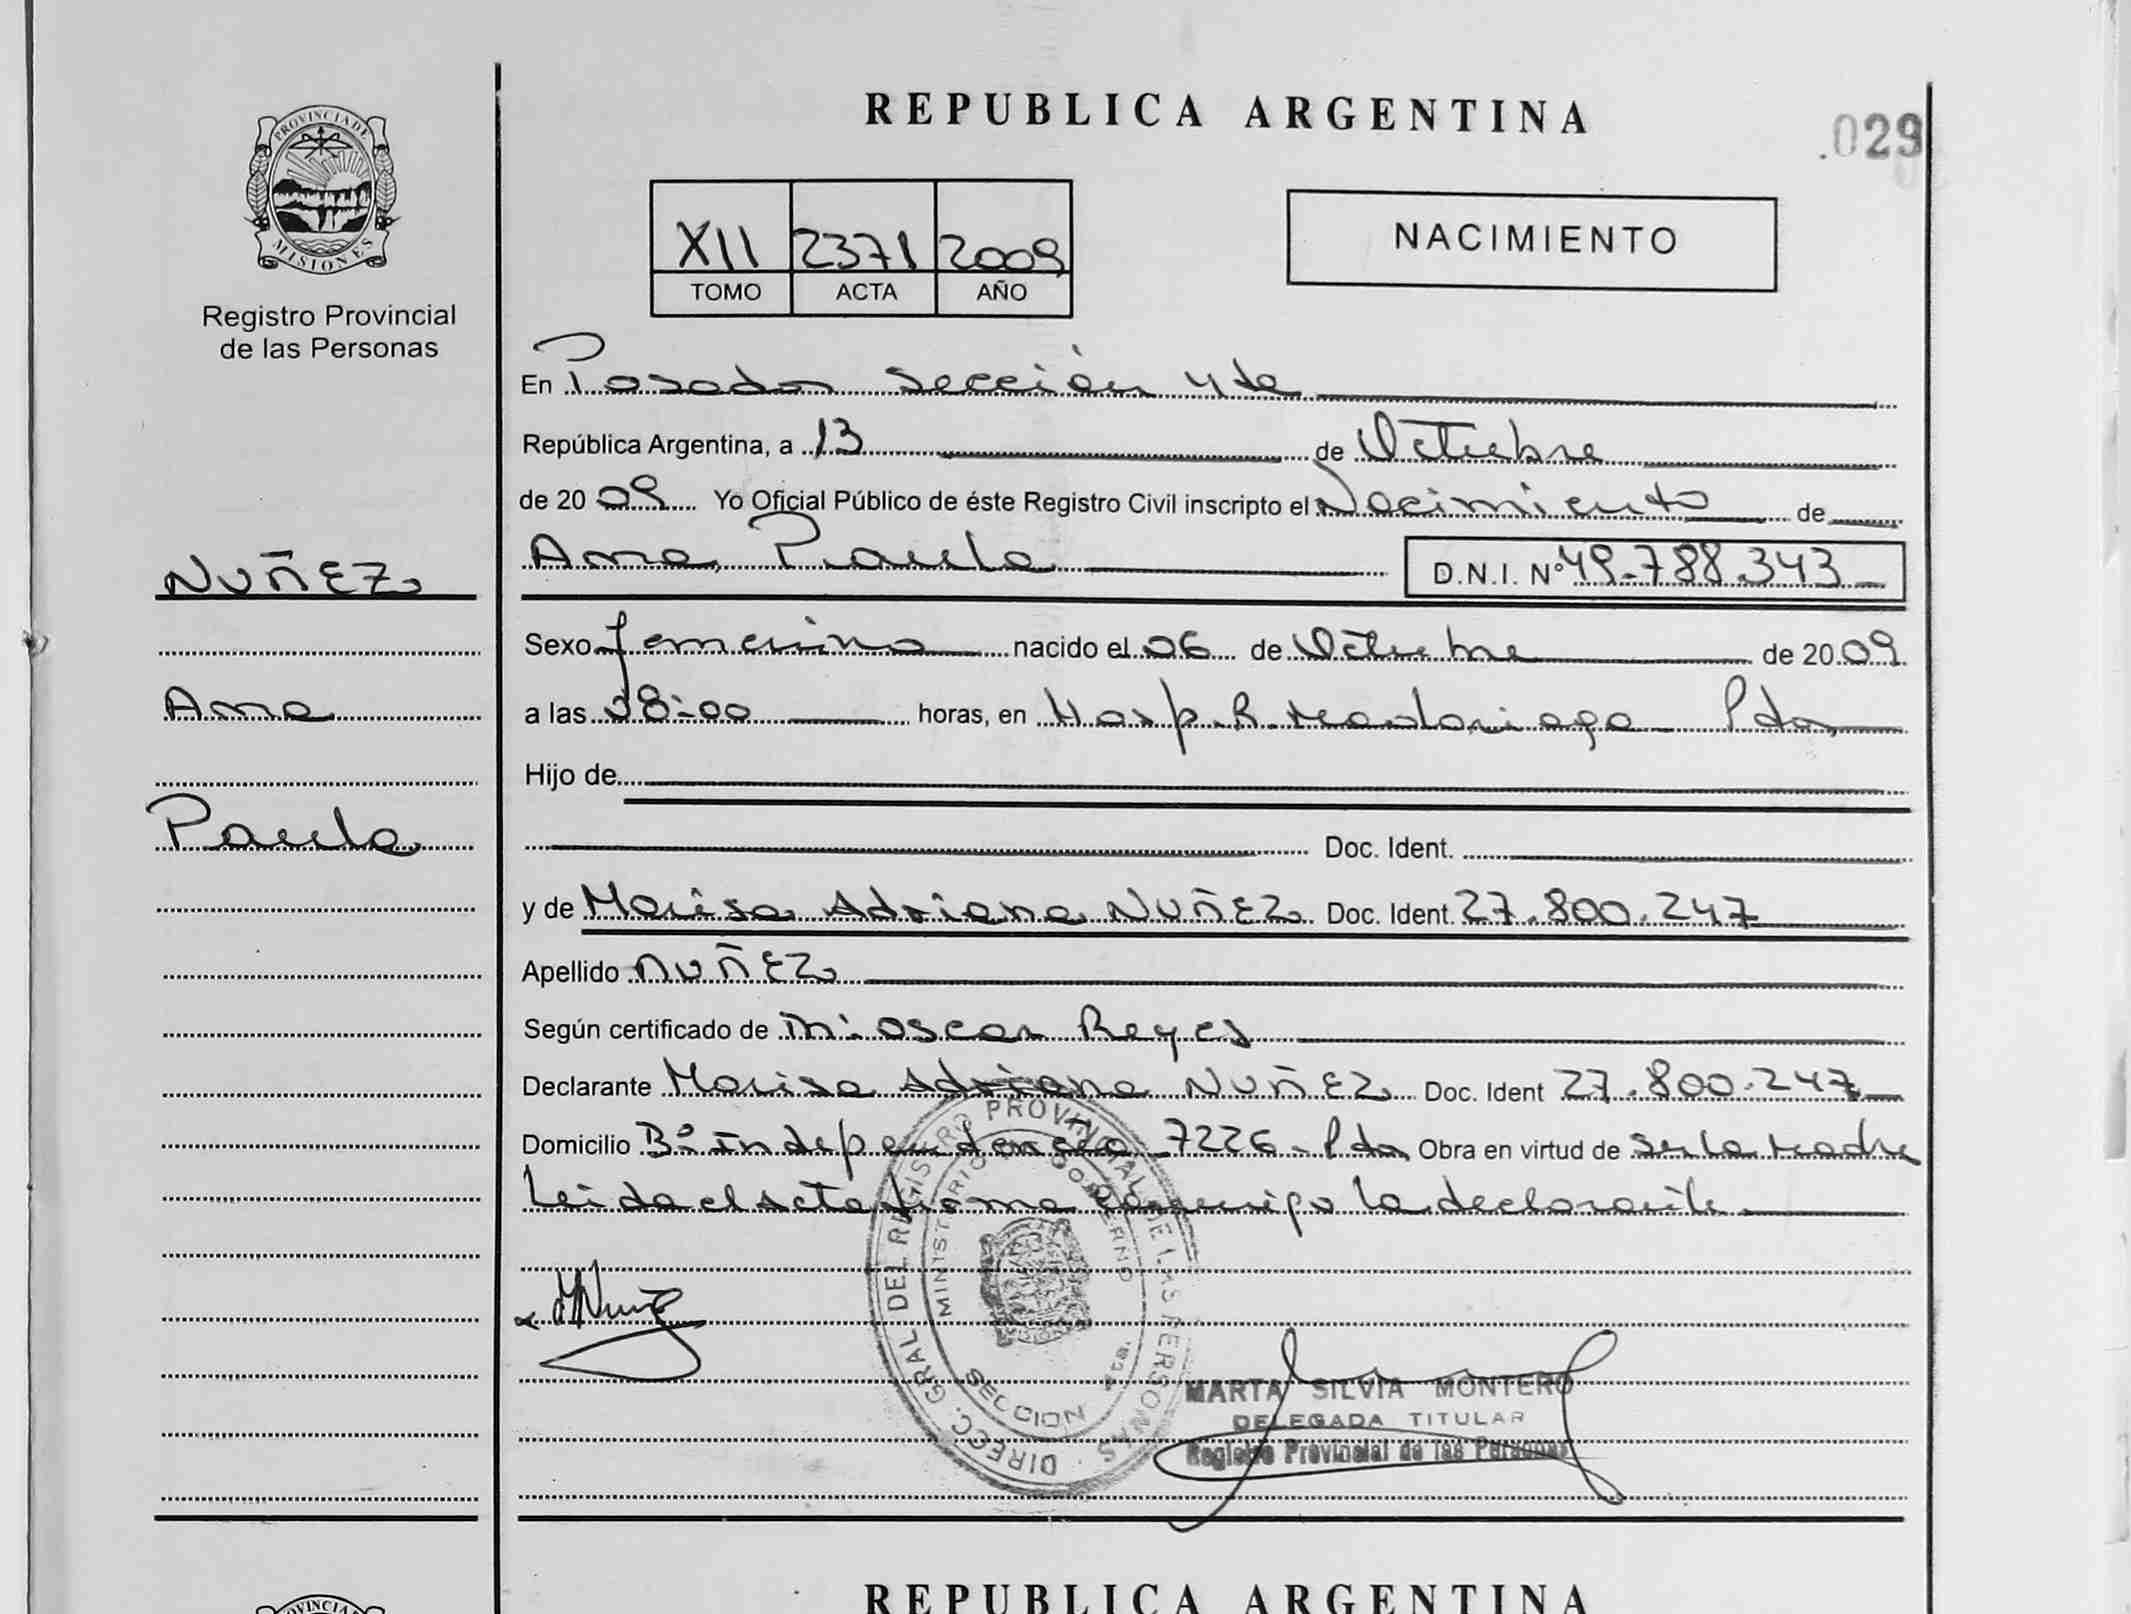 REPUBLICA ARGENTINA
.029
PROVINCIA DE
MISIONES
Registro Provincial
de las Personas
XII 2371 2009
TOMO ACTA AÑO
NACIMIENTO
En Posadas sección 4ta
República Argentina, a 13 de Octubre
de 2009 Yo Oficial Público de éste Registro Civil inscripto el Nacimiento de
Ana Paula D.N.I. Nº 49.788.343
NUÑEZ
Ana
Paula
Sexo femenino nacido el 06 de Octubre de 2009
a las 08:00 horas, en Hosp. R. Madariaga Pdas
Hijo de
Doc. Ident.
y de Marisa Adriana NUÑEZ Doc. Ident. 27.800.247
Apellido NUÑEZ
Según certificado de Oscar Reyes
Declarante Marisa Adriana NUÑEZ Doc. Ident 27.800.247
Domicilio Bº Independencia 7226 - Pdas Obra en virtud de ser la madre
Leida el acta firma conmigo la declarante
DIRECC. GRAL DEL REGISTRO PROVINCIAL DE LAS PERSONAS
MINISTERIO DE GOBIERNO
SECCION 4ta.
MARTA SILVIA MONTERO
DELEGADA TITULAR
Registro Provincial de las Personas
REPUBLICA ARGENTINA